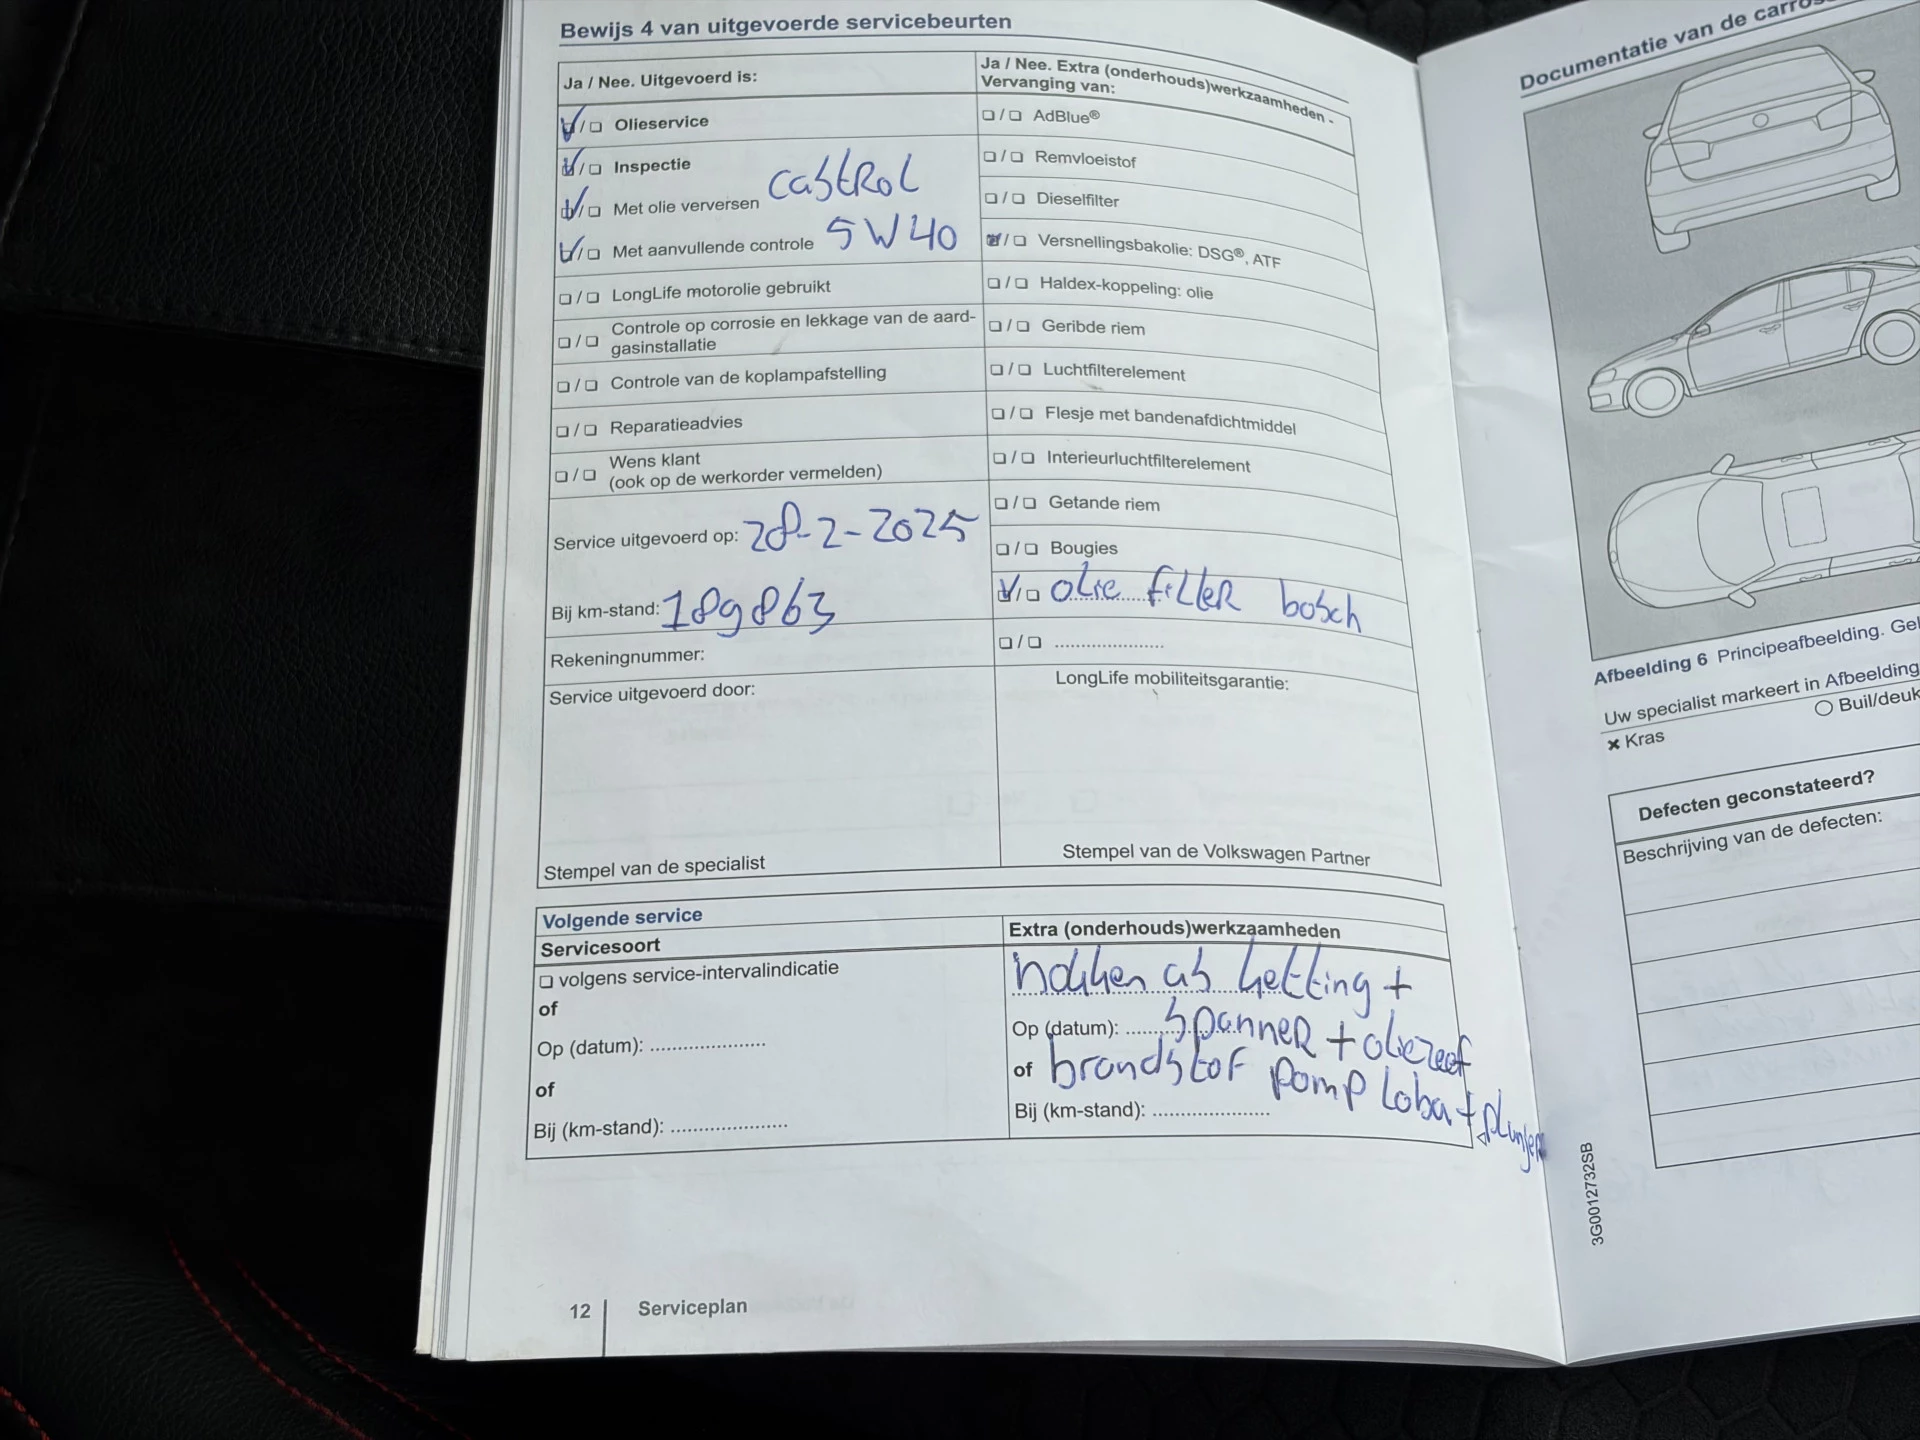 Bewijs 4 van uitgevoerde servicebeurten
Ja / Nee. Uitgevoerd is:
☑/❏ Olieservice
☑/❏ Inspectie
☑/❏ Met olie verversen castrol
☑/❏ Met aanvullende controle 5W40
❏/❏ LongLife motorolie gebruikt
❏/❏ Controle op corrosie en lekkage van de aard-
gasinstallatie
❏/❏ Controle van de koplampafstelling
❏/❏ Reparatieadvies
❏/❏ Wens klant
(ook op de werkorder vermelden)
Service uitgevoerd op: 28-2-2025
Bij km-stand: 189863
Rekeningnummer:
Service uitgevoerd door:
Stempel van de specialist
Ja / Nee. Extra (onderhouds)werkzaamheden -
Vervanging van:
❏/❏ AdBlue®
❏/❏ Remvloeistof
❏/❏ Dieselfilter
☑/❏ Versnellingsbakolie: DSG®, ATF
❏/❏ Haldex-koppeling: olie
❏/❏ Geribde riem
❏/❏ Luchtfilterelement
❏/❏ Flesje met bandenafdichtmiddel
❏/❏ Interieurluchtfilterelement
❏/❏ Getande riem
❏/❏ Bougies
☑/❏ olie filter bosch
❏/❏ .....................
LongLife mobiliteitsgarantie:
Stempel van de Volkswagen Partner
Volgende service
Servicesoort
❏ volgens service-intervalindicatie
of
Op (datum): .....................
of
Bij (km-stand): .....................
Extra (onderhouds)werkzaamheden
nokken as ketting +
Op (datum): spanner + oliezeef
of brandstof pomp Loba + plunjer
Bij (km-stand): .....................
12 Serviceplan
Documentatie van de
Afbeelding 6 Principeafbeelding.
Uw specialist markeert in Afbeelding
✗ Kras
○ Buil/deuk
Defecten geconstateerd?
Beschrijving van de defecten:
3G0012732SB